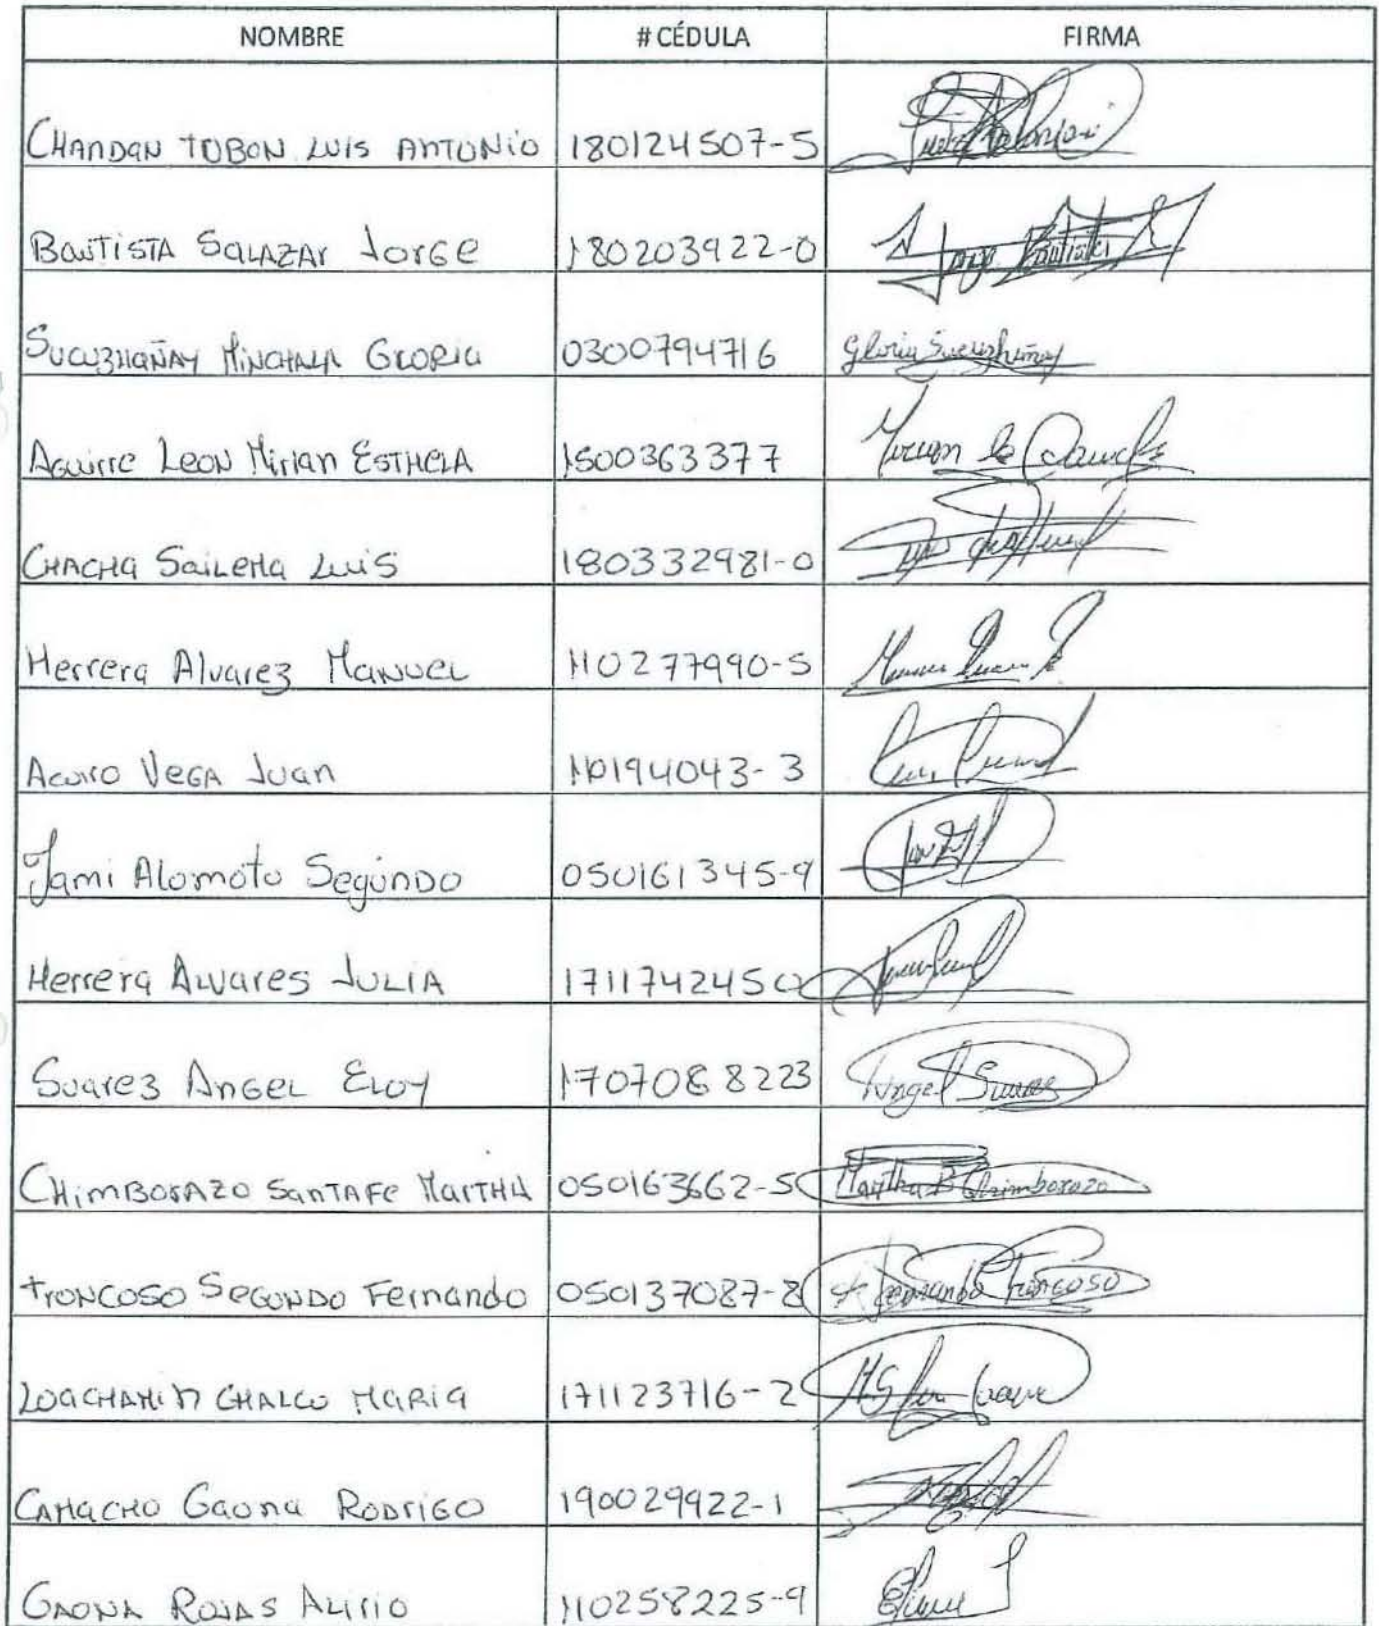 NOMBRE # CÉDULA FIRMA
CHANDAN TOBON LUIS ANTONIO 180124507-5
BAUTISTA SALAZAR JORGE 180203922-0 Jorge Bautista
SUCUZHAÑAY MINCHALA GLORIA 0300794716 Gloria Sucuzhañay
AGUIRRE LEON MIRIAN ESTHELA 1500363377
CHACHA SAILEMA LUIS 180332981-0
HERRERA ALVAREZ MANUEL 110277990-5
VEGA JUAN 110194043-3
Jami Alomoto Segundo 050161345-9
HERRERA ALVARES JULIA 1711742450
SUAREZ ANGEL ELOY 1707088223 Angel Suarez
CHIMBORAZO SANTAFE MARTHA 050163662-5 Martha B Chimborazo
TRONCOSO SEGUNDO FERNANDO 050137087-8 Fernando Troncoso
LOACHAMIN CHALCO MARIA 171123716-2
CAMACHO GAONA RODRIGO 190029922-1
GAONA ROJAS ALIRIO 110258225-9